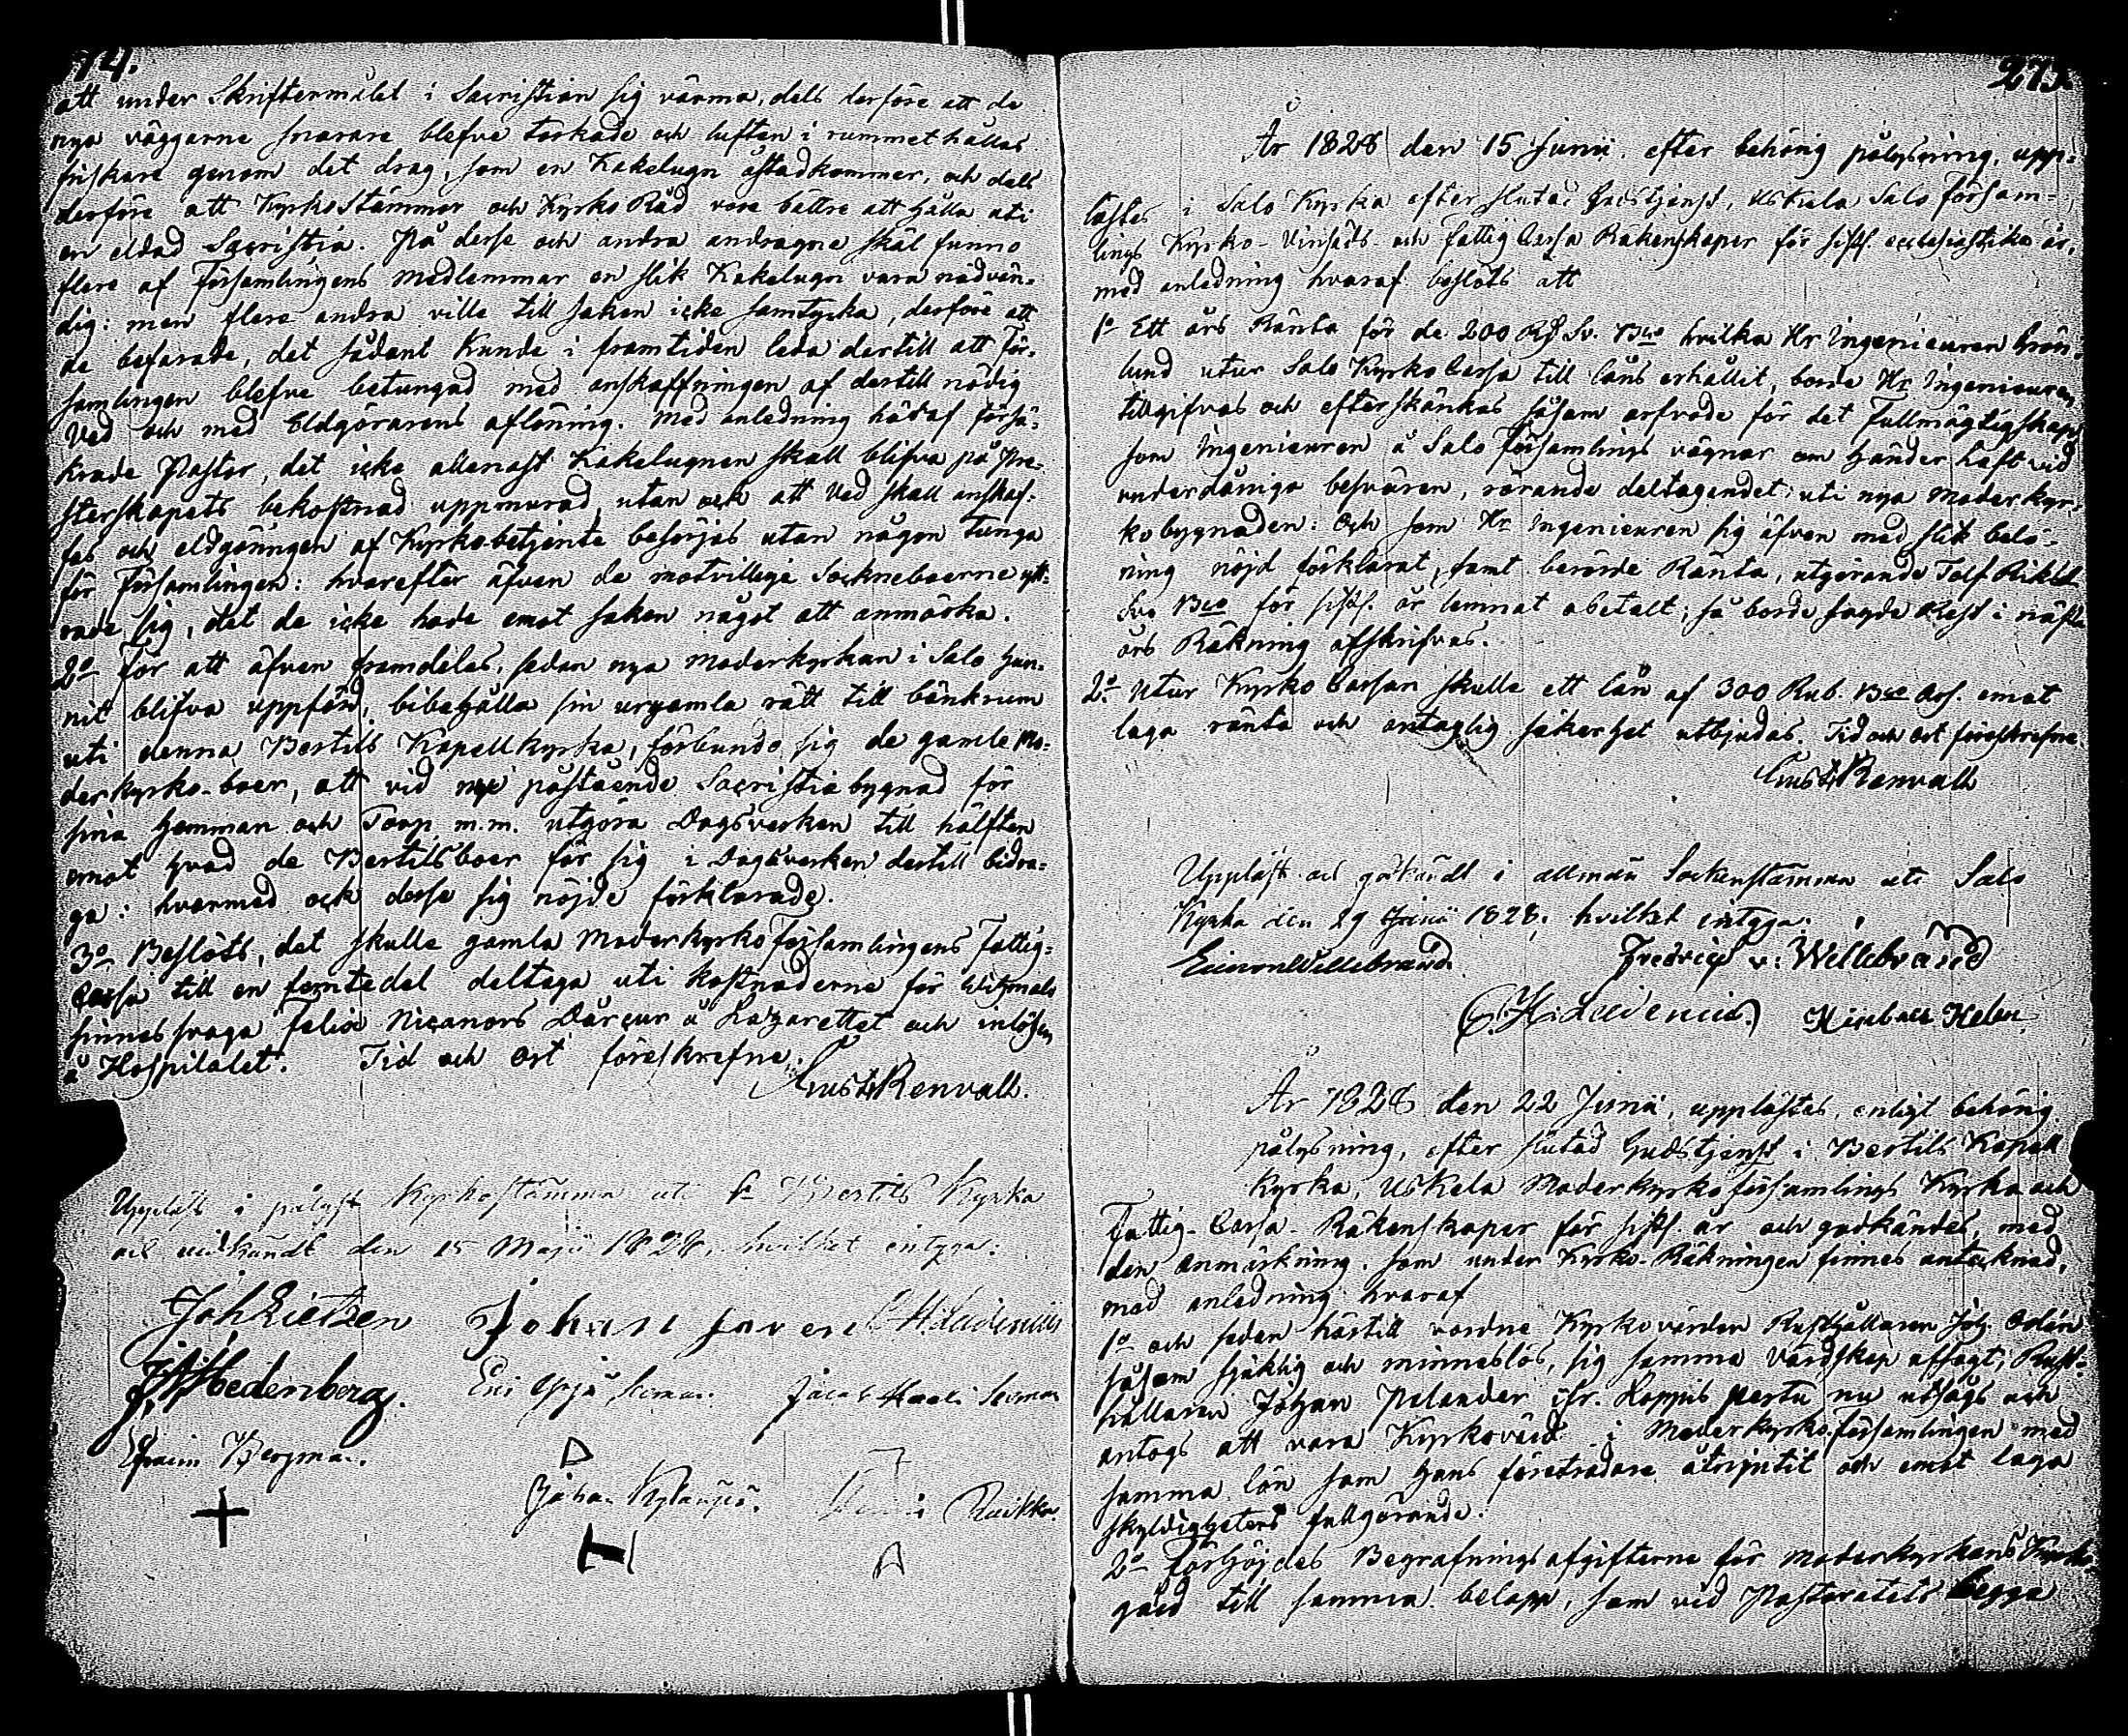 74.
att under Skriftermålet i Sacristian sig värma, dels derföre att de
nya väggarne snarare blefve torkade och luften i rummet hålles
friskare genom det drag, som en Kakelugn åstadkommer, och dels
derföre att KyrkoStämmor och Kyrko Råd vore bättre att hålla uti
en eldad Sacristia. På desse och andra andragne skäl funno
flere af Församlingens Medlemmar en slik Kakelugn vara nödvän-
dig: men flere andra ville till saken icke samtycka, derföre att
de befarade, det sådant kunde i framtiden leda dertill att För-
samlingen blefve betungad med anskaffningen af dertill nödig
Ved och med Eldgörarens aflöning. Med anledning häraf försä-
krade Pastor, det icke allenast Kakelugnen skall blifva på Pre-
sterskapets bekostnad uppmurad, utan ock att Ved skall anskaf-
fas och eldgöringen af Kyrkobetjente besörjes utan någon tunga
för Församlingen: hvarefter äfven de motvillige Sockneboerne ytt-
rade sig, det de icke hade emot saken något att anmärka.
2o För att äfven framdeles, sedan nya Moderkyrkan i Salo hun-
nit blifva uppförd, bibehålla sin urgamla rätt till bänkrum
uti denna Bertils Kapellkyrka, förbundo sig de gamle Mo-
derkyrko-boer, att vid nya påstående Sacristiæ bygnad för
sina Hemman och Torp m.m. utgöra Dagsverken till hälften
emot hvad de Bertilsboer för sig i Dagsverken dertill bidra-
ga: hvarmed ock desse sig nöjde förklarade.
3o Beslöts, det skulle gamla Moderkyrko Församlingens Fattig-
Cassa till en femtedel deltaga uti kostnaderne för
sinnessvaga Felix Nicanors Dårcur å Lazarettet och inlösen
å Hospitalet. Tid och Ort föreskrefne.
Gust. Renvall.
Uppläst i pålyst Kyrkostämma uti St Bertils Kyrka
och vidkändt den 15 Maji 1828, hvilket intyga:
Joh Zietzen Johan Javen C. H. Ludenius
J. Hedenberg. Eric Jacob
Efraim Bergman.
Johan Ruikka.
275.
År 1828 den 15 Junii efter behörig pålysning, upp-
lästes i Salo Kyrka efter slutad Gudstjenst, Uskela Salo Försam-
lings Kyrko- Vinsäds- och Fattig Cassa Räkenskaper för sistl. ecclesiastike år,
med anledning hvaraf beslöts att
1o Ett års Ränta för de 200 Rd Sv. Bco hvilka Hr Ingenieuren Grön-
lund utur Salo Kyrko Cassa till låns erhållit, borde Hr Ingenieuren
tillgifvas och efterskänkas såsom arfvode för det Fullmägtigskap
som Ingenieuren å Salo Församlings vägnar om händer haft vid
underdåniga besvären, rörande deltagendet uti nya Moderkyr-
kobygnaden: Och som Hr Ingenieuren sig äfven med slik belö-
ning nöjd förklarat, samt berörde Ränta, utgörande Tolf Riksd
Sv. Bco för sistl. år lemnat obetalt; så borde sagde Rest i nästa
års Räkning afskrifvas.
2o Utur Kyrko Cassan skulle ett lån af 300 Rub. Bco Ass. emot
laga ränta och antaglig säkerhet utbjudas. Tid och Ort föreskrefne
Gust. Renvall
Uppläst och godkändt i allmän Sockenstämma uti Salo
Kyrka den 29 Junii 1828, hvilket intyga.
Willebrand. Fredric v: Willebrand
C. H. Ludenius. Helen
År 1828 den 22 Junii, upplästes, enligt behörig
pålysning, efter slutad Gudstjenst i Bertils Kapell
kyrka, Uskela Moderkyrkoförsamlings Kyrko och
Fattig-Cassa-Räkenskaper för sistl. år och godkändes, med
den anmärkning som under Kyrko-Räkningen finnes antecknad,
med anledning hvaraf
1o och sedan härtill vordne Kyrkovärden Rusthållaren Joh. Odén
såsom sjuklig och minneslös, sig samma Värdskap afsagt; Rust-
hållaren Johan Pelander ifr. Koppis pertu nu utsågs och
antogs att vara Kyrkovärd i Moderkyrkoförsamlingen med
samma lön som hans företrädare åtnjutit och emot laga
skyldigheters fullgörande.
2o Förhöjdes Begrafningsafgifterne för Moderkyrkans Kyrko-
gård till samma belopp, som vid Pastoratets begge